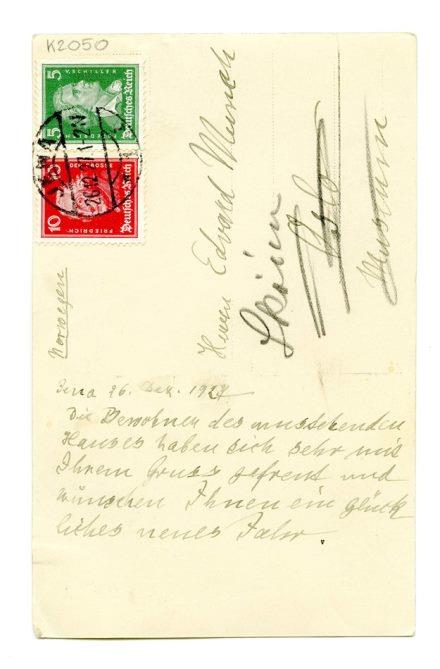 K2050
5 V. SCHILLER 5
Deutsches Reich
10 10
FRIEDRICH DER GROSSE
Deutsches Reich
JENA
26.12.27
Herrn Edvard Munch
Skøien
Oslo
Museum
Norwegen
Jena 26. Dez. 1927
Die Bewohner des umstehenden
Hauses haben sich sehr mit
Ihrem Gruss gefreut und
wünschen Ihnen ein glück
liches neues Jahr.